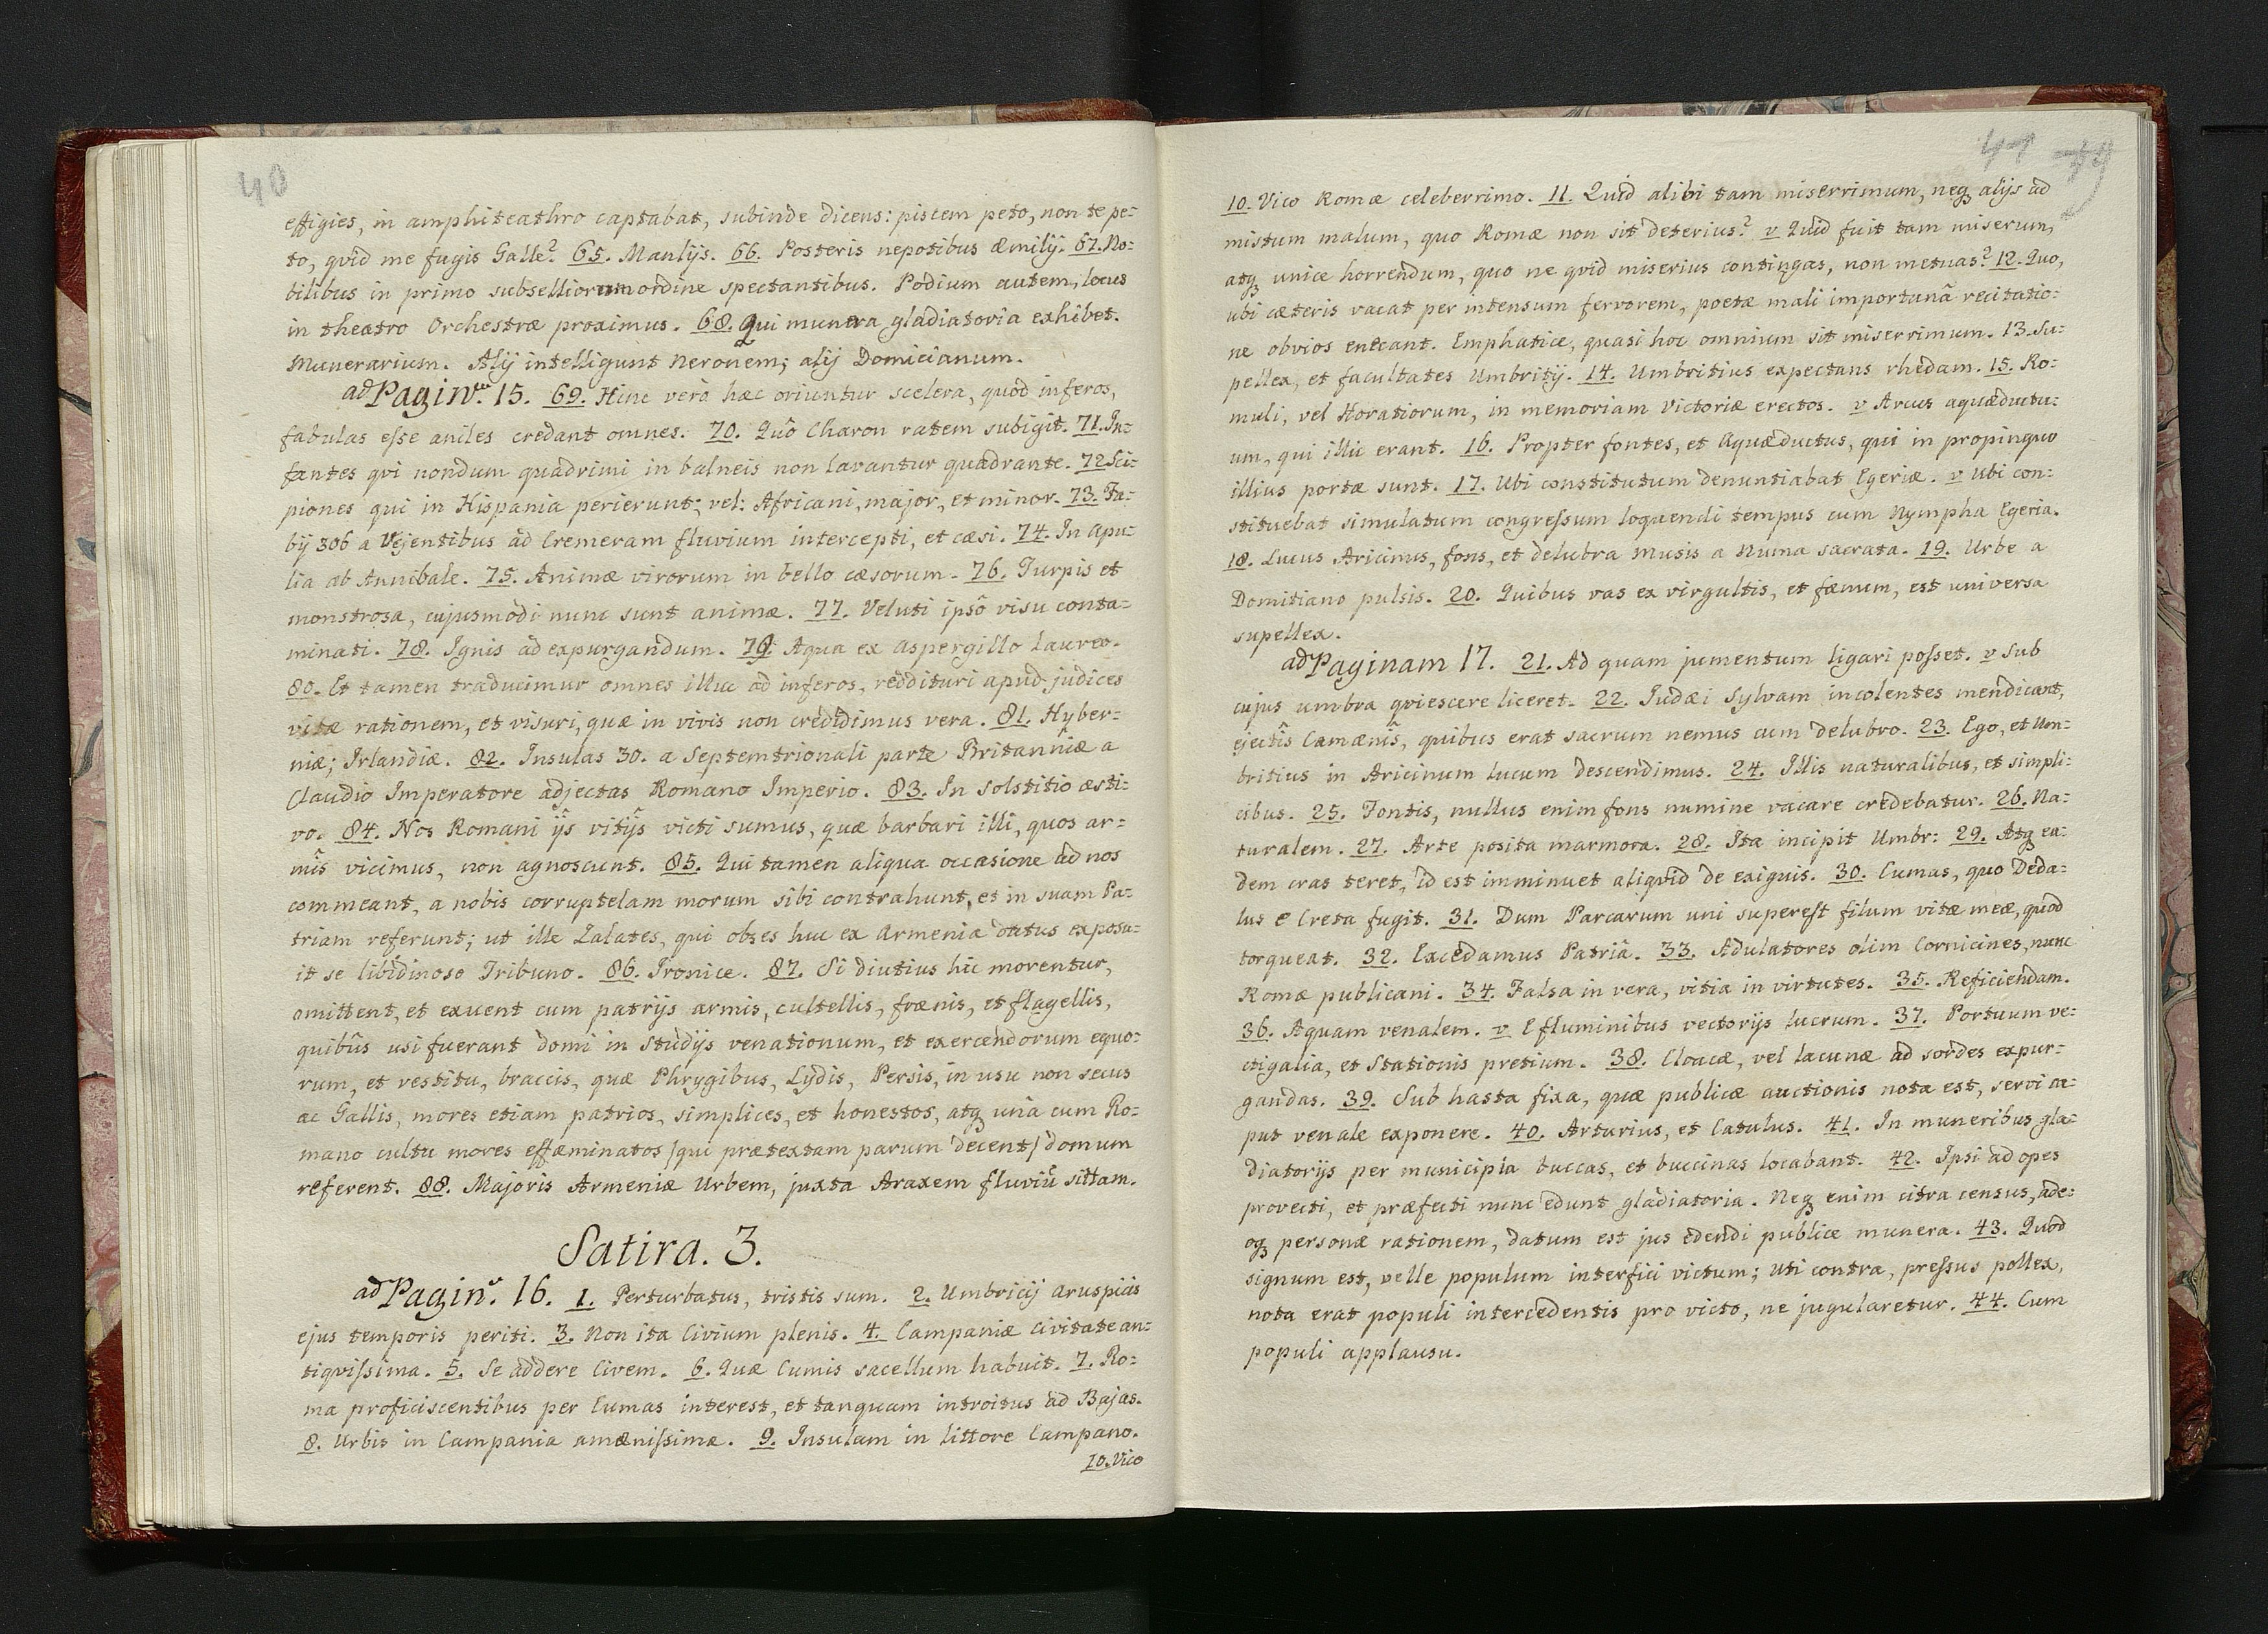 40
effigies, in amphiteathro captabat, subinde dicens: piscem peto, non te pe:
to, qvid me fugis Galle? 65. Manlijs. 66. Posteris nepotibus æmilij. 67. No:
bilibus in primo subselliorum ordine spectantibus. Podium autem, locus
in theatro Orchestræ proximus. 68. Qui munera gladiatoria exhibet.
Munerarium. Alij intelligunt Neronem; alij Domicianum.
ad Pagin. 15. 69. Hinc verò hæc oriuntur scelera, quod inferos,
fabulas esse aniles credant omnes. 70. Quô Charon ratem subigit. 71. In:
fantes qvi nondum quadrimi in balneis non lavantur quadrante. 72 Sci:
piones qui in Hispania perierunt; vel: Africani, major, et minor. 73. Fa:
bij 306 a Vejentibus ad Cremeram fluvium intercepti, et cæsi. 74. In Apu:
lia ab Annibale. 75. Animæ virorum in bello cæsorum. 76. Turpis et
monstrosa, cujusmodi nunc sunt animæ. 77. Veluti ipsô visu conta:
minati. 78. Ignis ad expurgandum. 79. Aqua ex aspergillo laureo.
80. Et tamen traducimur omnes illuc ad inferos, reddituri apud judices
vitæ rationem, et visuri, quæ in vivis non credidimus vera. 81. Hyber:
niæ; Irlandiæ. 82. Insulas 30. a Septemtrionali parte Britanniæ a
Claudio Imperatore adjectas Romano Imperio. 83. In solstitio æsti:
vo. 84. Nos Romani ijs vitijs victi sumus, quæ barbari illi, quos ar:
mîs vicimus, non agnoscunt. 85. Qui tamen aliqua occasione ad nos
commeant, a nobis corruptelam morum sibi contrahunt, et in suam Pa:
triam referunt; ut ille Zalates, qui obses huc ex Armenia datus exposu:
it se libidinoso Tribuno. 86. Ironice. 87. Si diutius hic morentur,
omittent, et exuent cum patrijs armis, cultellis, frænis, et flagellis,
quibûs usi fuerant domi in studijs venationum, et exercendorum equo:
rum, et vestitu, braccis, quæ Phrygibus, Lydis, Persis, in usu non secus
ac Gallis, mores etiam patrios, simplices, et honestos, atq una cum Ro:
mano cultu mores effæminatos /qui prætextam parum decent/ domum
referent. 88. Majoris Armeniæ Urbem, juxta Araxem fluviũ sittam.
Satira. 3.
ad Pagin. 16. 1. Perturbatus, tristis sum. 2. Umbricij aruspicis
ejus temporis periti. 3. Non ita Civium plenis. 4. Campaniæ civitate an:
tiqvissima. 5. Se addere Civem. 6. Quæ Cumis sacellum habuit. 7. Ro:
ma proficiscentibus per Cumas interest, et tanquam introitus ad Bajas.
8. Urbis in Campania amænissimæ. 9. Insulam in littore Campano.
10. Vico
41 79
10. Vico Romæ celeberrimo. 11. Quid alibi tam miserrimum, neq alijs ad
mistum malum, quo Romæ non sit deterius? v Quid fuit tam miserum,
atq unice horrendum, quo ne qvid miserius contingas, non metuas? 12. Quo,
ubi cæteris vacat per intensum fervorem, poetæ mali importunâ recitatio:
ne obvios enecant. Emphatice, quasi hoc omnium sit miserrimum. 13. Su:
pellex, et facultates Umbritij. 14. Umbritius expectans rhedam. 15. Ro:
muli, vel Horatiorum, in memoriam Victoriæ erectos. v Arcus aquæductu:
um, qui illic erant. 16. Propter fontes, et Aquæductus, qui in propinquo
illius portæ sunt. 17. Ubi constitutum denuntiabat Egeriæ. v Ubi con:
stituebat simulatum congressum loquendi tempus cum Nympha Egeria.
18. Lucus Aricinus, fons, et delubra Musis a Numa sacrata. 19. Urbe a
Domitiano pulsis. 20. Quibus vas ex virgultis, et fænum, est universa
supellex.
ad Paginam 17. 21. Ad quam jumentum ligari posset. v Sub
cujus umbra qviescere liceret. 22. Iudæi Sylvam incolentes mendicant,
ejectîs Camænîs, quibus erat sacrum nemus cum delubro. 23. Ego, et Um:
britius in Aricinum lucum descendimus. 24. Illis naturalibus, et simpli:
cibus. 25. Fontis, nullus enim fons numine vacare credebatur. 26. Na:
turalem. 27. Arte posita marmora. 28. Ita incipit Umbr: 29. Atq ea:
dem cras teret, id est imminuet aliqvid de exiguis. 30. Cumas, quo Deda:
lus e Creta fugit. 31. Dum Parcarum uni superest filum vitæ meæ, quod
torqueat. 32. Excedamus Patriâ. 33. Adulatores olim Cornicines, nunc
Romæ publicani. 34. Falsa in vera, vitia in virtutes. 35. Reficiendam.
36. Aquam venalem. v E fluminibus vectorijs lucrum. 37. Portuum ve:
ctigalia, et Stationis pretium. 38. Cloacæ, vel lacunæ ad sordes expur:
gandas. 39. Sub hasta fixa, quæ publicæ auctionis nota est, servi ca:
put venale exponere. 40. Arturius, et Catulus. 41. In muneribus gla:
diatorijs per municipia buccas, et buccinas locabant. 42. Ipsi ad opes
provecti, et præfecti nunc edunt gladiatoria. Neq enim citra census, ade:
oq personæ rationem, datum est jus edendi publice munera. 43. Quod
signum est, velle populum interfici victum; uti contra, pressus pollex,
nota erat populi intercedentis pro victo, ne jugularetur. 44. Cum
populi applausu.